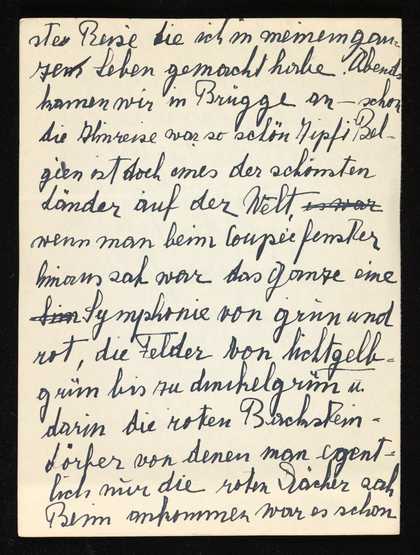 ste Reise die ich in meinem gan-
zen Leben gemacht habe. Abends
kamen wir in Brügge an – schon
die Hinreise war so schön Zipfi Bel-
gien ist doch eines der schönsten
Länder auf der Welt, es war
wenn man beim Coupéefenster
hinaus sah war das Ganze eine
Sin Symphonie von grün und
rot, die Felder von lichtgelb-
grün bis zu dunkelgrün u.
darin die roten Backstein-
dörfer von denen man egent-
lich nur die roten Dächer sah
Beim ankommen war es schon